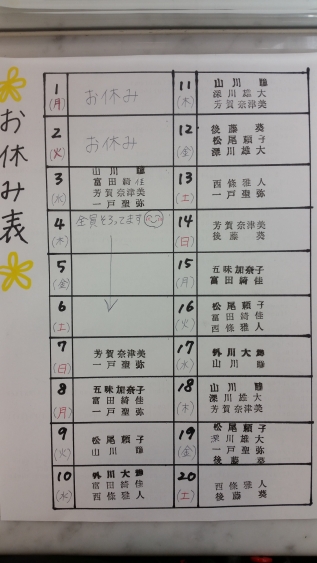 お休み表
1
(月)
お休み
2
(火)
お休み
3
(水)
山川
富田綺佳
芳賀奈津美
一戸聖弥
4
(木)
全員そろってます
5
(金)
6
(土)
7
(日)
芳賀奈津美
一戸聖弥
8
(月)
五味加奈子
富田綺佳
一戸聖弥
9
(火)
松尾頼子
山川
10
(水)
外川大
富田綺佳
西條雅人
11
(木)
山川
深川雄大
芳賀奈津美
12
(金)
後藤葵
松尾頼子
深川雄大
13
(土)
西條雅人
一戸聖弥
14
(日)
芳賀奈津美
後藤葵
15
(月)
五味加奈子
富田綺佳
16
(火)
松尾頼子
富田綺佳
西條雅人
17
(水)
外川大
山川
18
(木)
山川
深川雄大
芳賀奈津美
19
(金)
松尾頼子
深川雄大
一戸聖弥
後藤葵
20
(土)
西條雅人
後藤葵